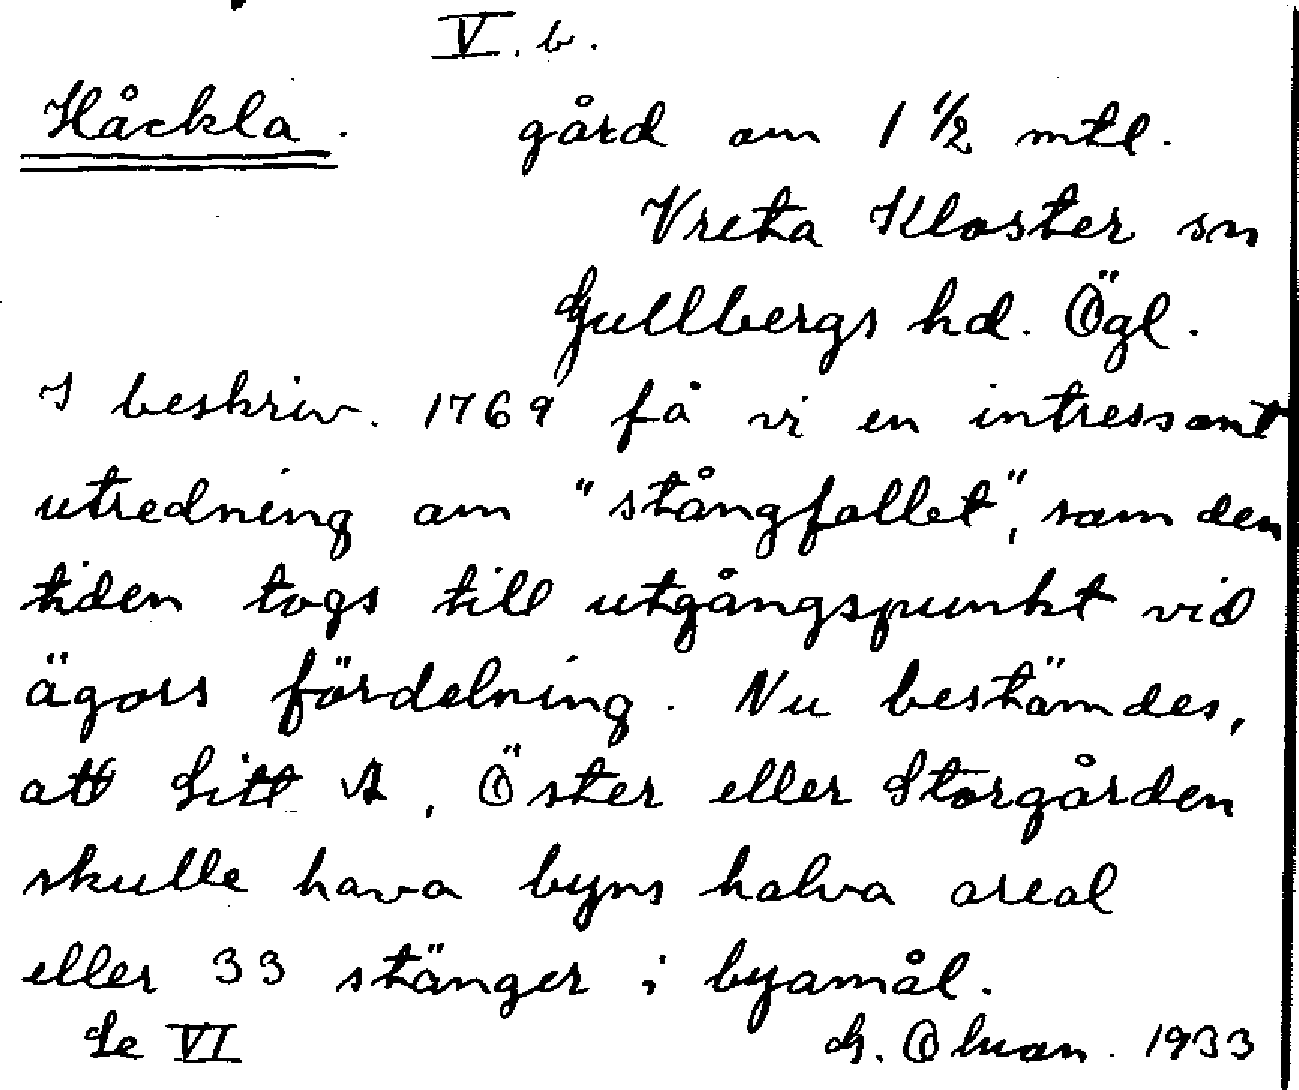 V. b.
Håckla. gård om 1 1/2 mtl.
Vreta Kloster sn
Gullbergs hd. Ögl.
I beskriv. 1769 få vi en intressant
utredning om "stångfallet", som den
tiden togs till utgångspunkt vid
ägors fördelning. Nu bestämdes,
att Litt A, Öster eller Storgården
skulle hava byns halva areal
eller 33 stänger i byamål.
Se VI G. 1933